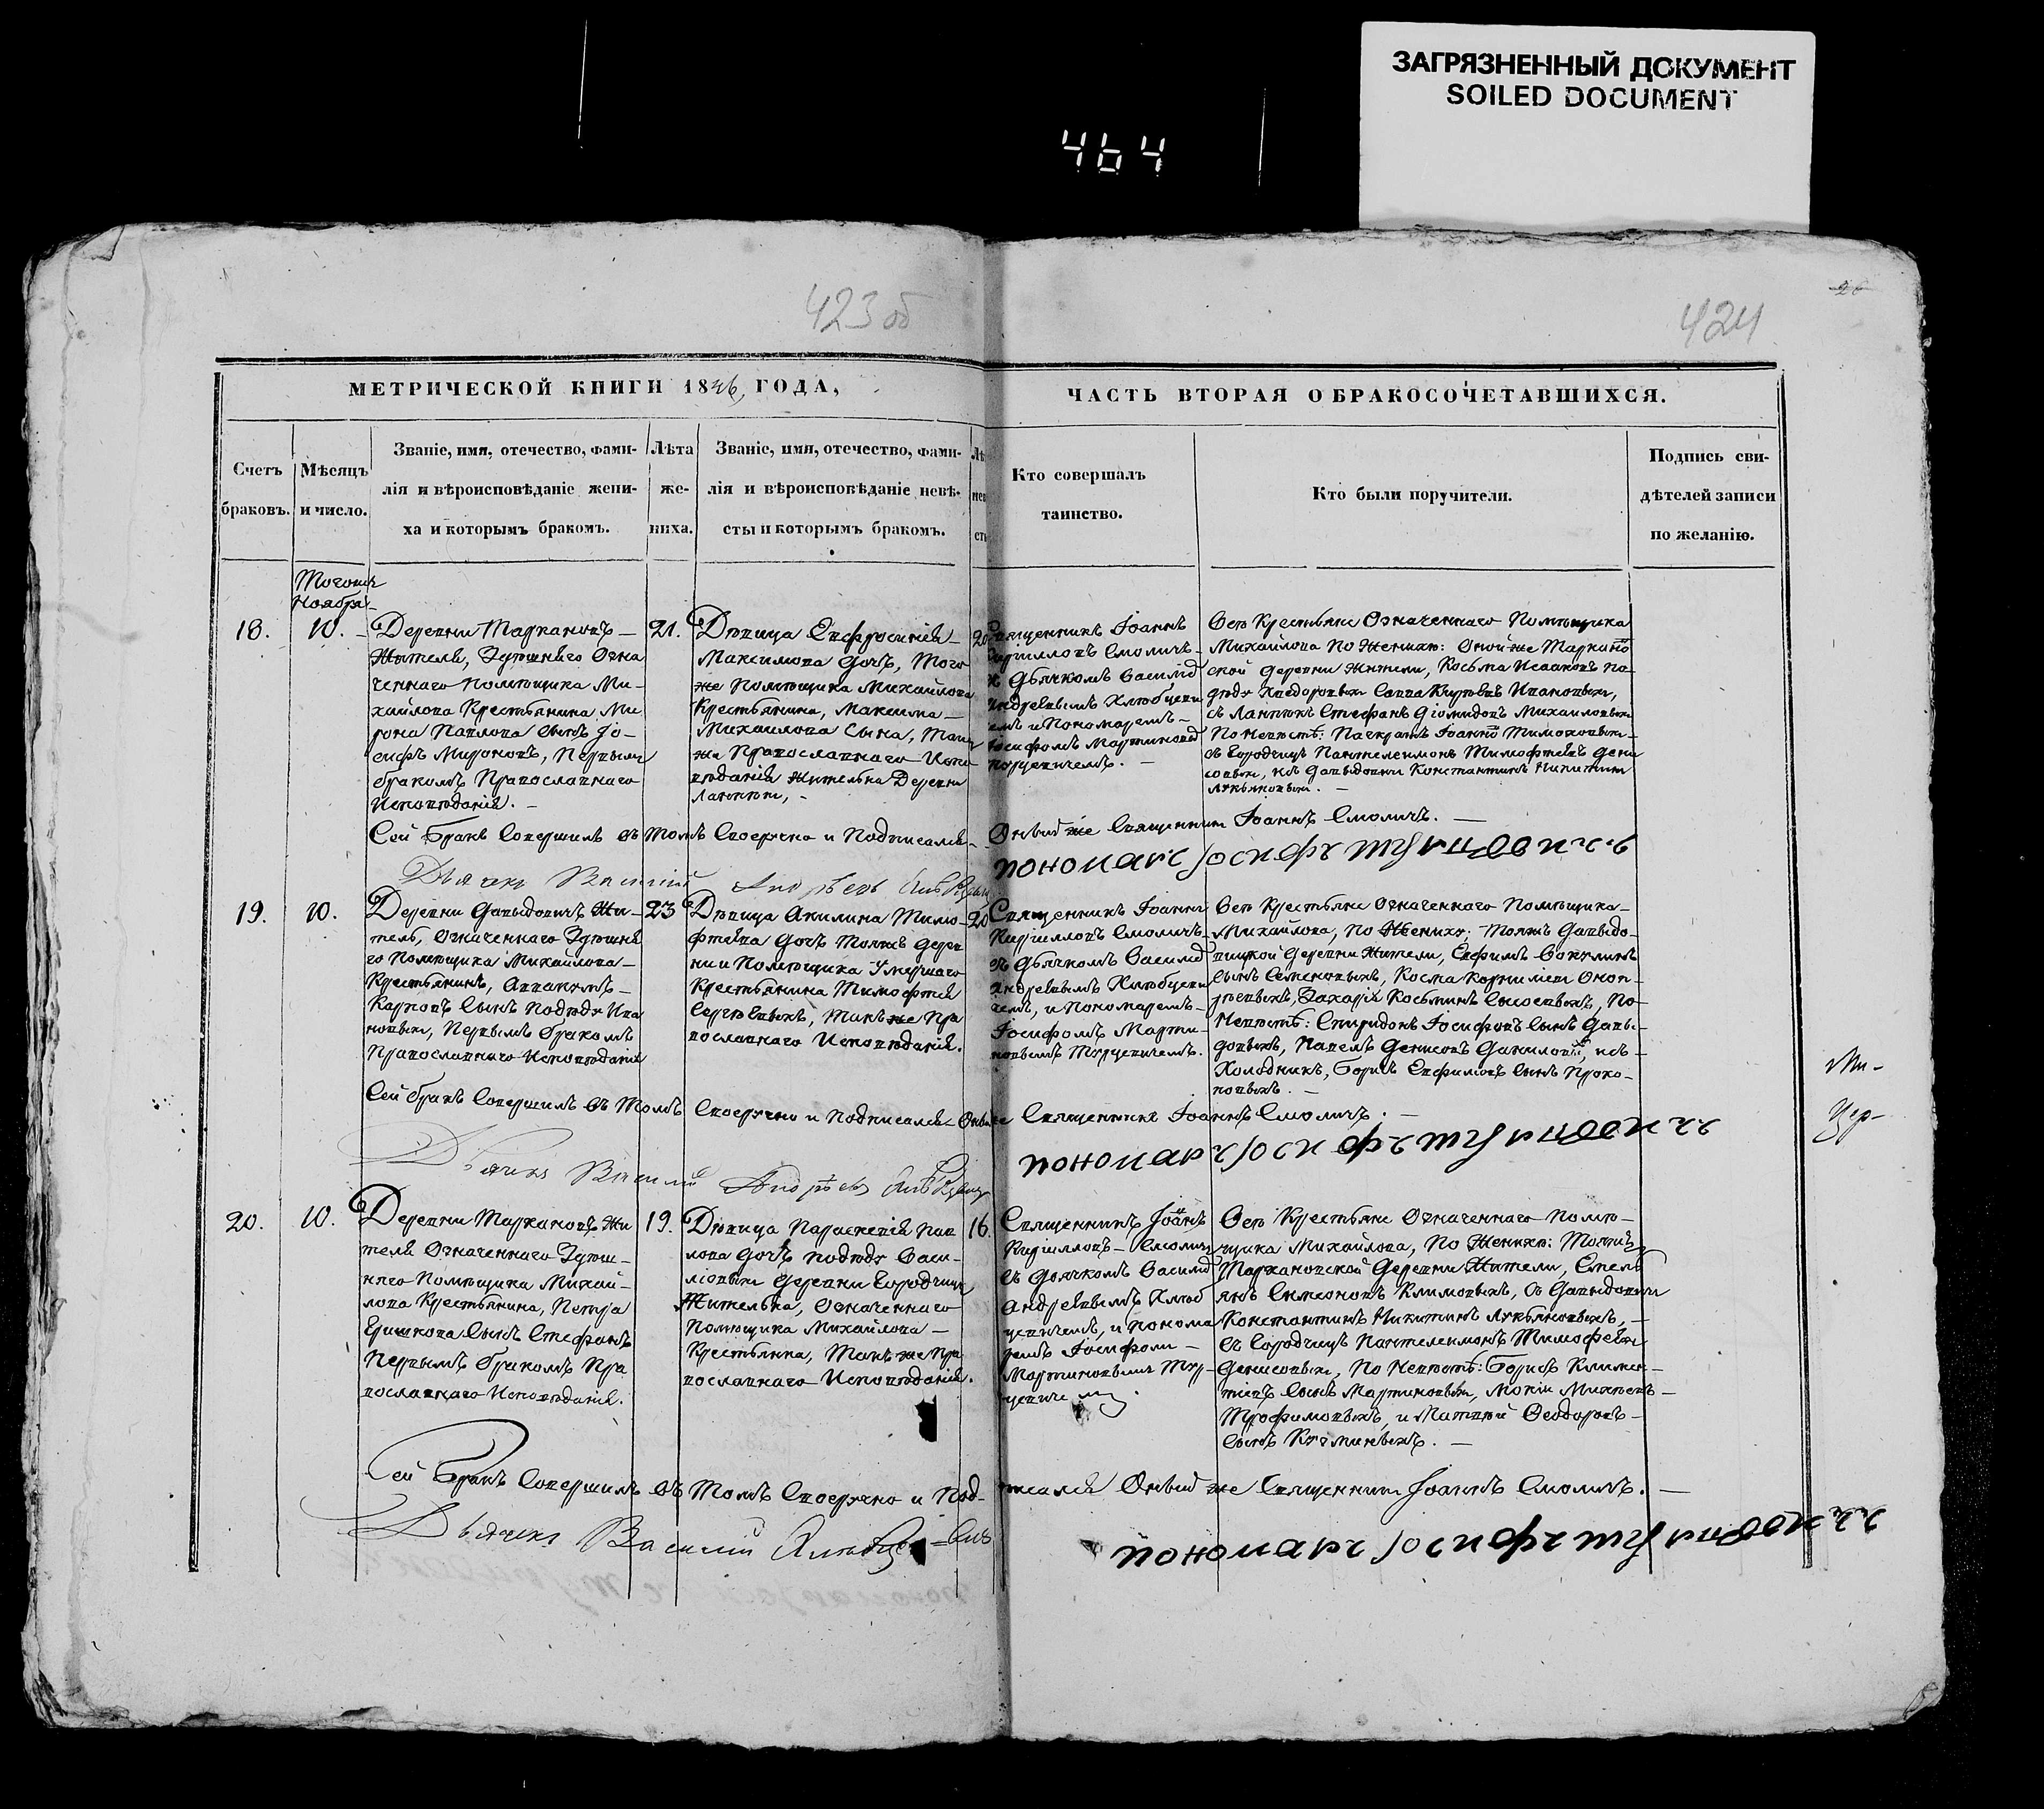 ЗАГРЯЗНЕННЫЙ ДОКУМЕНТ
SOILED DOCUMENT
464
423 об
424
26
МЕТРИЧЕСКОЙ КНИГИ 1846 ГОДА,
ЧАСТЬ ВТОРАЯ О БРАКОСОЧЕТАВШИХСЯ.
Счетъ
браковъ.
Мѣсяцъ
и число.
Званіе, имя, отечество, фами-
лія и вѣроисповѣданіе жени-
ха и которымъ бракомъ.
Лѣта
же-
ниха.
Званіе, имя, отечество, фами-
лія и вѣроисповѣданіе невѣ-
сты и которымъ бракомъ.
Кто совершалъ
таинство.
Кто были поручители.
Подпись сви-
дѣтелей записи
по желанію.
Ноября
18.
10.
Деревни Таркановъ
Жителя, Здѣшняго Озна
ченнаго Помѣщика Ми-
хайлова Крестьянина Ми
рона Павлова сынъ Іо-
сифъ Мироновъ, Первымъ
бракомъ Православнаго
Исповѣданія.
21.
Дѣвица Евфросинія
Максимова дочь, Того
же Помѣщика Михайлова
Крестьянина, Максима
Михайлова Сына,
же Православнаго Испо
вѣданія Жителька Деревни
20
Священникъ Іоаннъ
Кирилловъ Смоличъ
Дьячкомъ Василіемъ
и Пономаремъ
Іосифомъ
Всѣ Крестьяне Означеннаго Помѣщика
Михайлова По Женихѣ: Оной же
ской Деревни Жители, Косьма Исааковъ
Стефанъ Діомидовъ Михайловыхъ
По Невѣстѣ: Панкратъ
съ Городчицъ Пантелеимонъ Тимофѣевъ Дени
совыхъ, изъ Давыдовичи Константинъ Никитинъ
Лукьяновыхъ.
Сей Бракъ Совершилъ въ Томъ Своеручно и Подписался
Оный же Священникъ Іоаннъ Смоличъ.
Дьячекъ Василій Андрѣевъ
Пономарь Іосифъ
19.
10.
Деревни Давыдовичъ Жи-
тель, Означеннаго Здѣшня
го Помѣщика Михайлова
Крестьянинъ, Аввакумъ
Карповъ Сынъ Подѣдъ Ива
новыхъ, Первымъ бракомъ
Православнаго Исповѣданія
23
Дѣвица Акилина Тимо-
фѣева Дочь Тояжъ Дерев
ни и Помѣщика Умершаго
Крестьянина Тимофѣя
Сергѣевыхъ, Такъ же Пра
вославнаго Исповѣданія.
20
Священникъ Іоаннъ
Кирилловъ Смоличъ
съ Дьячкомъ Василіемъ
и Пономаремъ
Іосифомъ Марти-
новымъ Турцевичемъ.
Всѣ Крестьяне Означеннаго Помѣщика
Михайлова, по Женихѣ: Тояжъ Давыдо-
вицкой Деревни Жители, Ефимъ
сынъ Семеновыхъ, Косма Корнилiевъ Оноп-
рѣевыхъ, Захарія Косьминъ Сысоевыхъ, По
Невѣстѣ: Спиридонъ Іосифовъ Сынъ Давы-
довыхъ, Павелъ Денисовъ Даниловыхъ, изъ
Холодникъ, Борисъ Евфимовъ Сынъ Проко-
повыхъ.
Ми-
Цер-
Сей бракъ Совершилъ въ Томъ Своеручно и Подписался Оный же Священникъ Іоаннъ Смоличъ.
Дьячекъ Василій Андрѣевъ
Пономарь Іосифъ
20.
10.
Деревни Таркановъ Жи
теля Означеннаго Здѣш-
няго Помѣщика Михай-
лова Крестьянина, Петра
Гришкова Сынъ Стефанъ
Первымъ бракомъ Пра
вославнаго Исповѣданія.
19.
Дѣвица Параскевія Пав
лова Дочь Подѣдъ Васи-
ліовыхъ Деревни Городчицъ
Жителька, Означеннаго
Помѣщика Михайлова
Крестьянка, Такъ же Пра
вославнаго Исповѣданія.
16.
Священникъ Іоаннъ
Кирилловъ Смоличъ
съ Дьячкомъ Василіемъ
и Понома
ремъ Іосифомъ
Мартиновымъ Тур-
цевиче
Всѣ Крестьяне Означеннаго Помѣ-
щика Михайлова, По Женихѣ: Тояжъ
Таркановской Деревни Жители, Емель
янъ Симеоновъ Климовыхъ, съ Давыдовичи
Константинъ Никитинъ Лукьяновыхъ,
съ Городчицъ Пантелеимонъ Тимофѣевъ
Денисовыхъ, По Невѣстѣ: Борисъ Климен-
тіевъ Сынъ Мартиновыхъ, Мокій Михѣевъ
Трофимовыхъ, и Матвѣй Феодоровъ
Сынъ Кузминыхъ.
Сей Бракъ Совершилъ въ Томъ Своеручно и Под-
писался Оный же Священникъ Іоаннъ Смоличъ.
Дьячекъ Василій
Пономарь Іосифъ